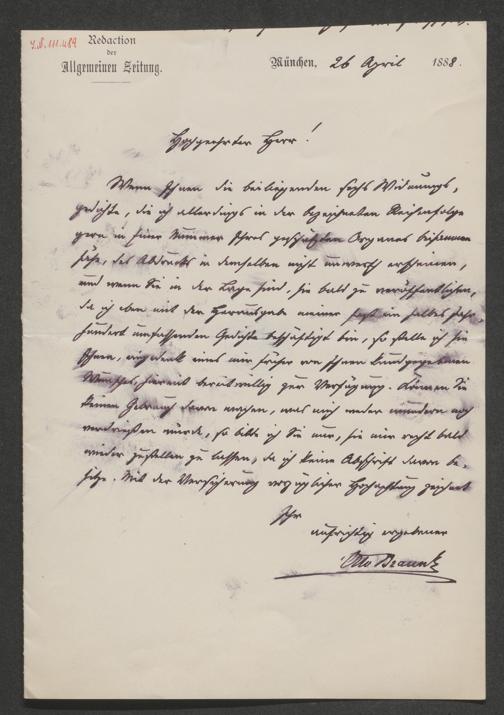 I.N. 111.489
Redaction
der
Allgemeinen Zeitung.
München, 26 April 1888.
Hochgeehrter Herr!
Wenn Ihnen die beiliegenden sechs Widmungs-
gedichte, die ich allerdings in der bezeichneten Reihenfolge
gern in einer Nummer Ihres geschätzten Organes beisammen
sähe, des Abdrucks in demselben nicht unwerth erscheinen,
und wenn Sie in der Lage sind, sie bald zu veröffentlichen,
da ich eben mit der Herausgabe meiner fast ein halbes Jahr-
hundert umfassenden Gedichte beschäftigt bin, so stelle ich sie
Ihnen, eingedenk eines mir früher von Ihnen kundgegebenen
Wunsches, hiermit bereitwillig zur Verfügung. Können Sie
keinen Gebrauch davon machen, was mich weder wundern noch
verdrießen würde, so bitte ich Sie nur, sie mir recht bald
wieder zustellen zu lassen, da ich keine Abschrift davon be-
sitze. Mit der Versicherung vorzüglicher Hochachtung zeichnet
Ihr
aufrichtig ergebener
Otto Braun